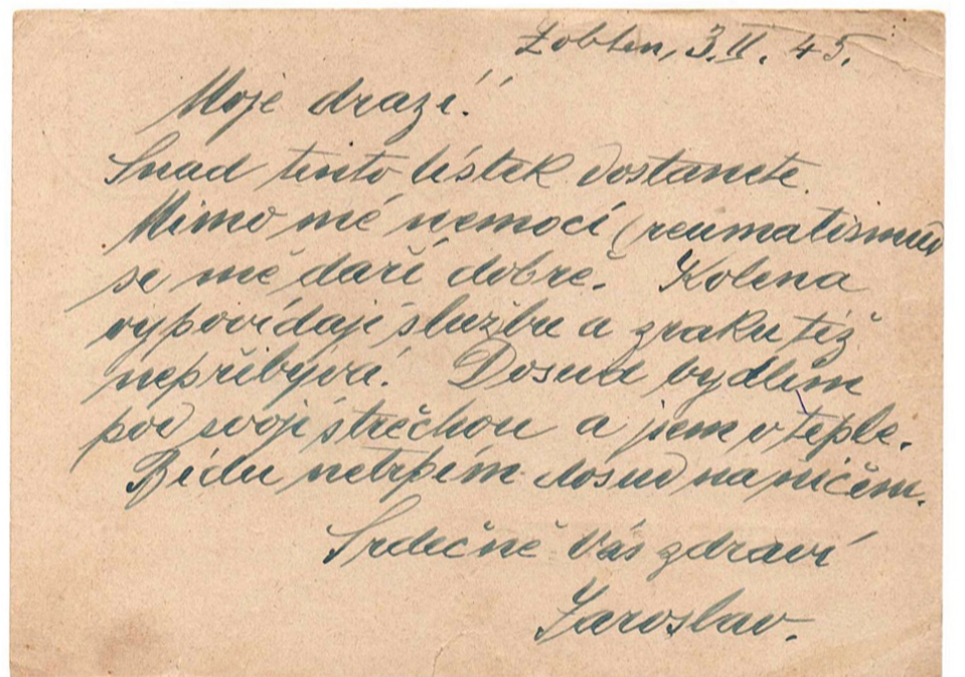 Zobten, 3.II. 45.
Moje drazí!
Snad tento lístek dostanete.
Mimo mé nemoci (reumatismu)
se mě daří dobře. Kolena
vypovídají službu a zraku též
nepřibývá. Dosud bydlím
pod svojí střechou a jsem v teple.
Bídu netrpím dosud na ničem.
Srdečně Vás zdraví
Jaroslav.